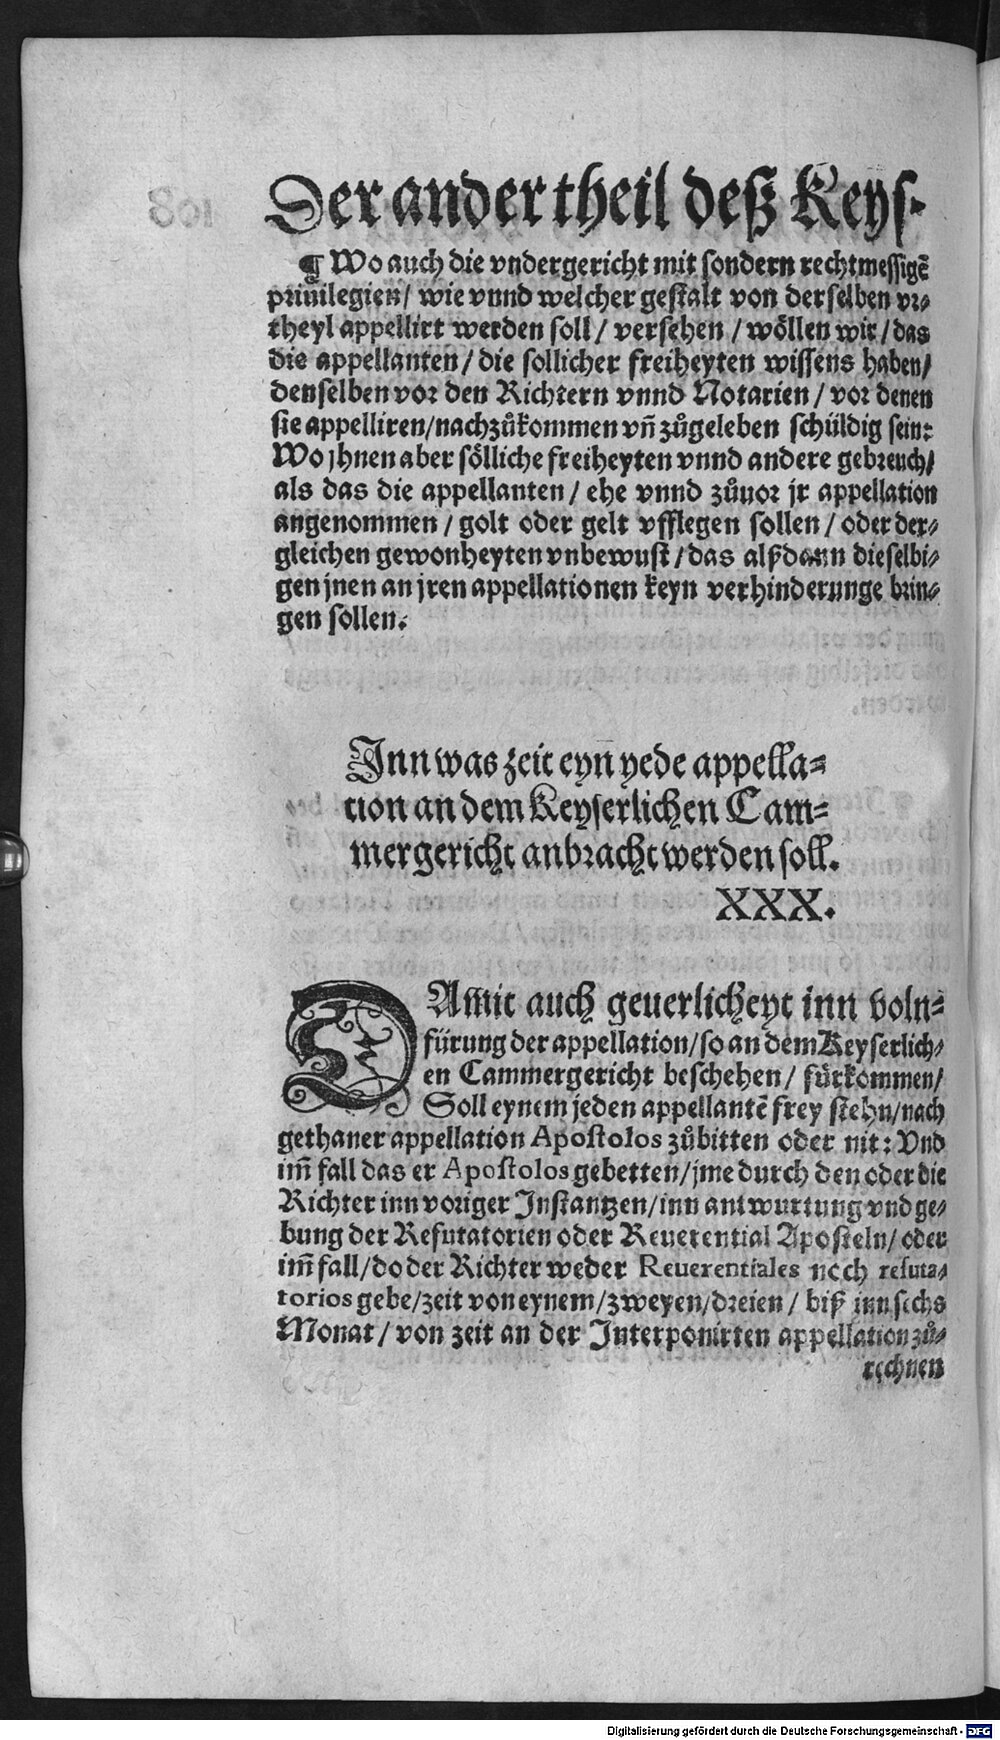 Der ander theil deß Keys-
¶ Wo auch die vndergericht mit sondern rechtmessigẽ
priuilegien/ wie vnnd welcher gestalt von derselben vr-
theyl appellirt werden soll/ versehen/ wöllen wir/ das
die appellanten/ die sollicher freiheyten wissens haben/
denselben vor den Richtern vnnd Notarien/ vor denen
sie appelliren/ nachzůkommen vñ zůgeleben schüldig sein:
Wo jhnen aber sölliche freiheyten vnnd andere gebreuch/
als das die appellanten/ ehe vnnd zůuor jr appellation
angenommen/ golt oder gelt vfflegen sollen/ oder der-
gleichen gewonheyten vnbewust/ das alßdann dieselbi-
gen jnen an jren appellationen keyn verhinderunge brin-
gen sollen.
Jnn was zeit eyn yede appella-
tion an dem Keyserlichen Cam-
mergericht anbracht werden soll.
XXX.
DAmit auch geuerlicheyt inn voln-
fürung der appellation/ so an dem Keyserlich-
en Cammergericht beschehen/ fürkommen/
Soll eynem jeden appellantẽ frey stehn/ nach
gethaner appellation Apostolos zůbitten oder nit: Vnd
im̃ fall das er Apostolos gebetten/ jme durch den oder die
Richter inn voriger Instantzen/ inn antwurtung vnd ge-
bung der Refutatorien oder Reuerential Aposteln/ oder
im̃ fall/ do der Richter weder Reuerentiales noch refuta-
torios gebe/ zeit von eynem/ zweyen/ dreien/ biß inn sechs
Monat/ von zeit an der Interponirten appellation zů-
rechnen
Digitalisierung gefördert durch die Deutsche Forschungsgemeinschaft - DFG